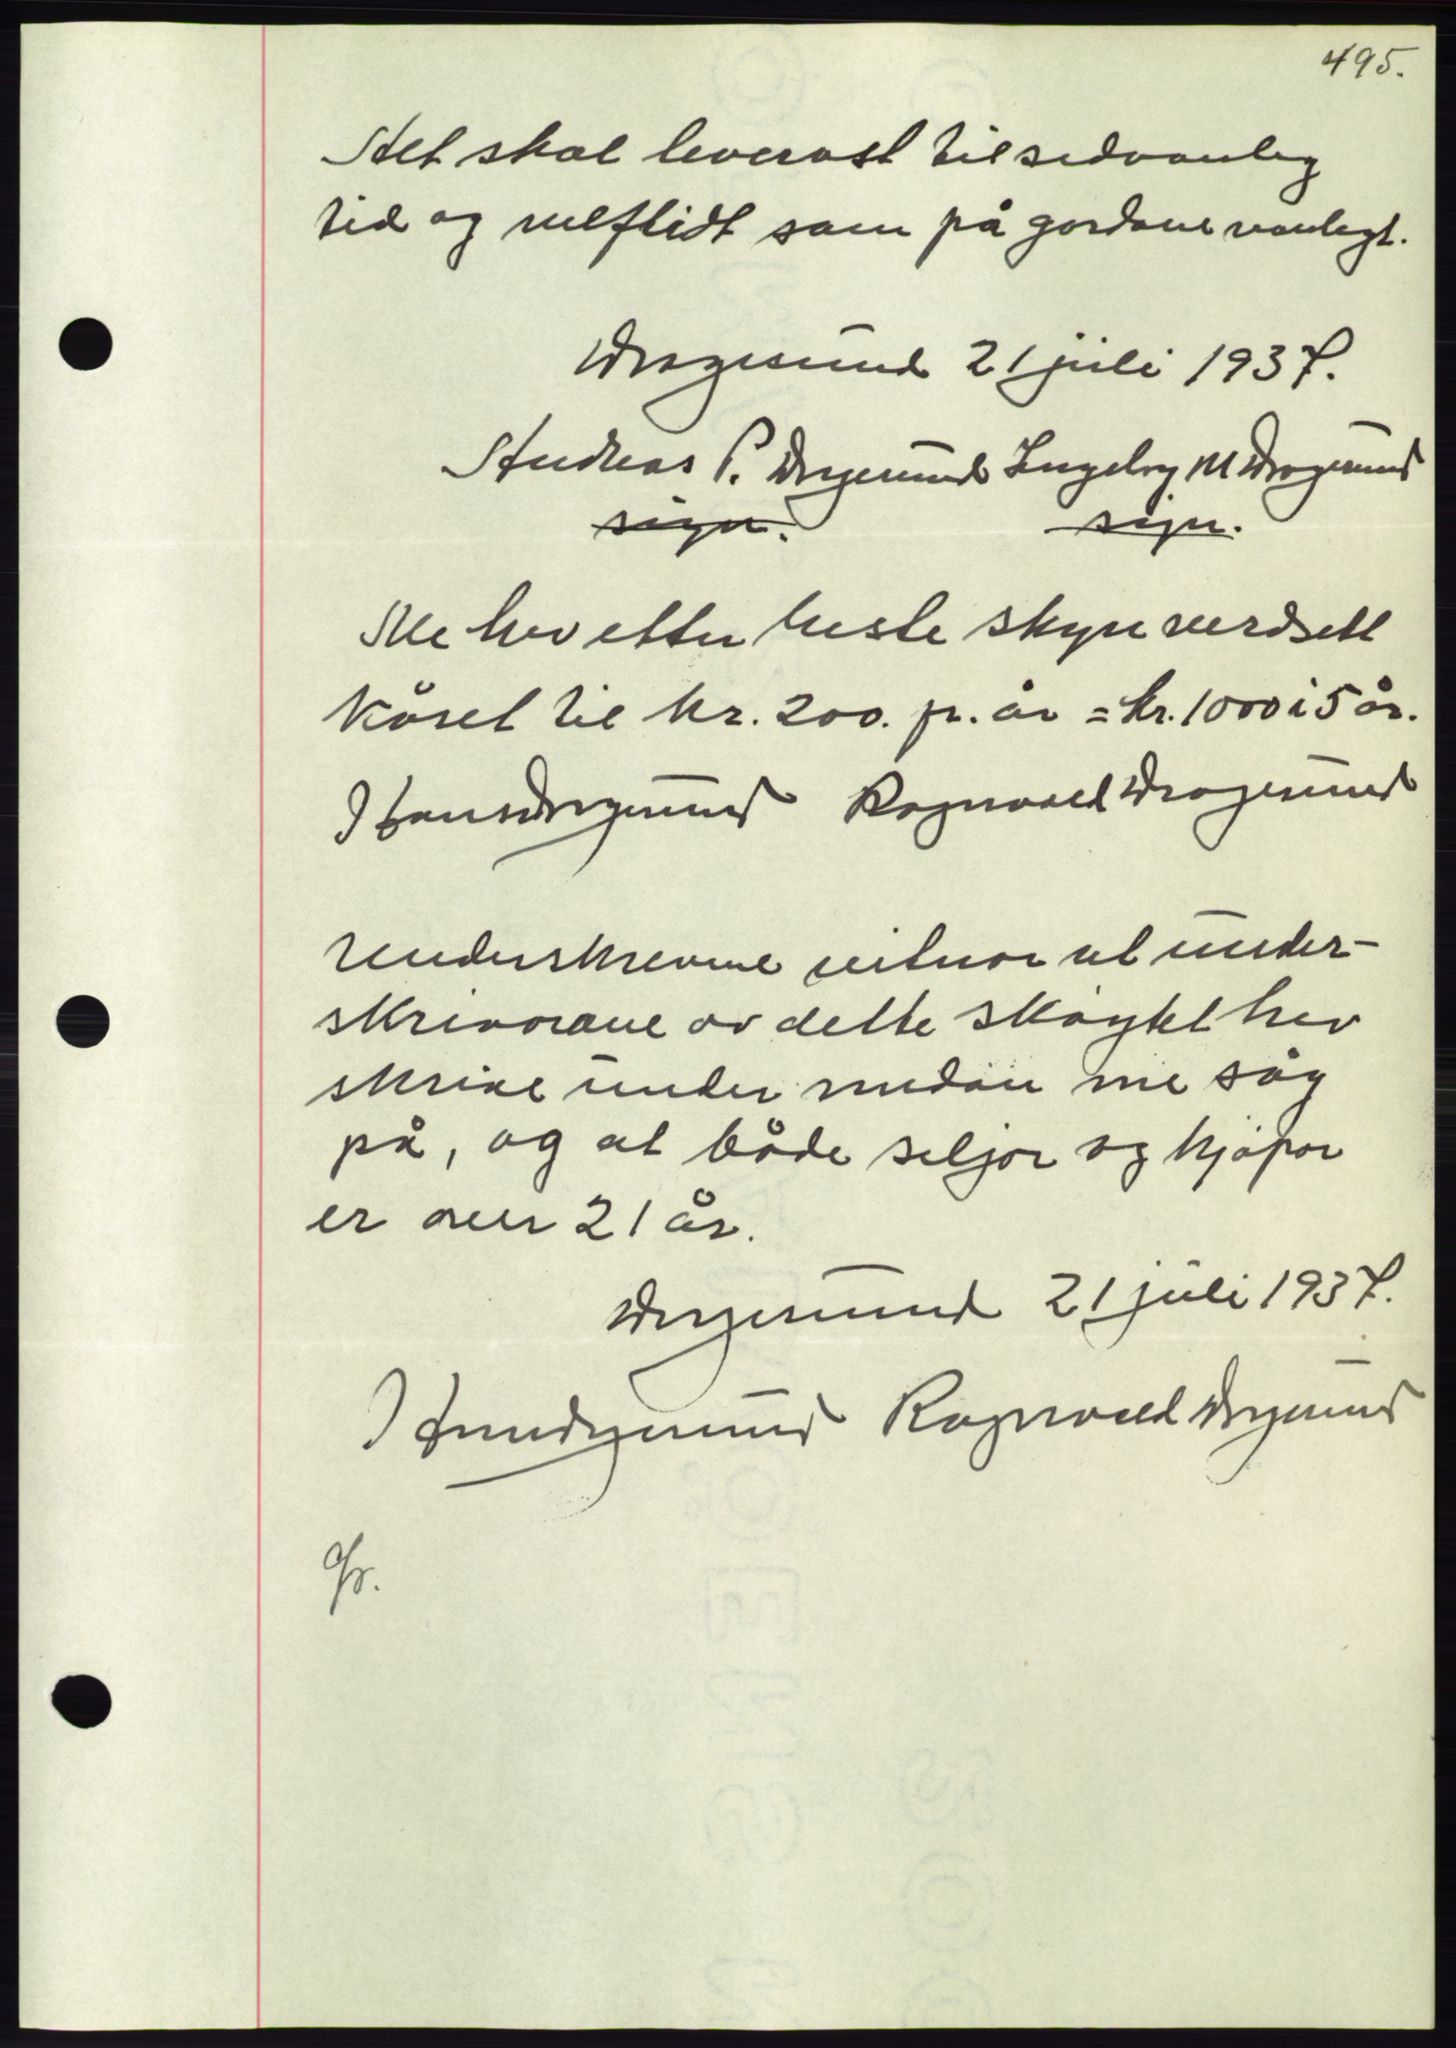 495.
Alt skal leverast til sedvanleg
tid og velflidt som på gardane vanlegt.
Dragesund 21 juli 1937.
Andreas P. Dragesund Ingebrg M Dragesund
sign. sign.
Me hev etter beste skyn verdsett
kåret til kr. 200. pr. år = kr. 1000 i 5 år.
Hans Dragesund Ragnvald Dragesund
Underskrevne vitnar at under-
skrivarane av dette skøytet hev
skrive under medan me såg
på, og at både seljar og kjøpar
er over 21 år.
Dragesund 21 juli 1937.
Hans Dragesund Ragnvald Dragesund